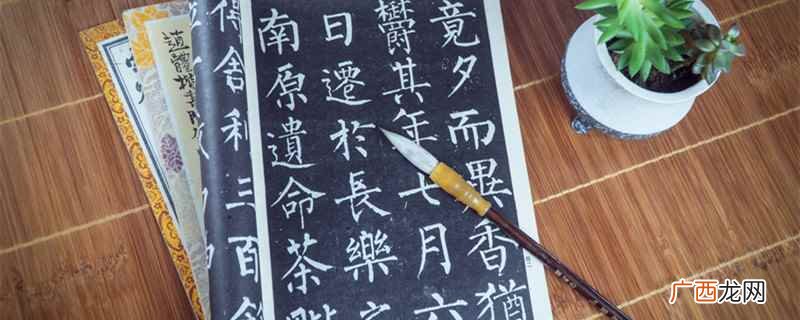 竟夕而異香猶
鬱其年七月六
日遷於長樂之
南原遺命茶
得舍利三百
广西龙网